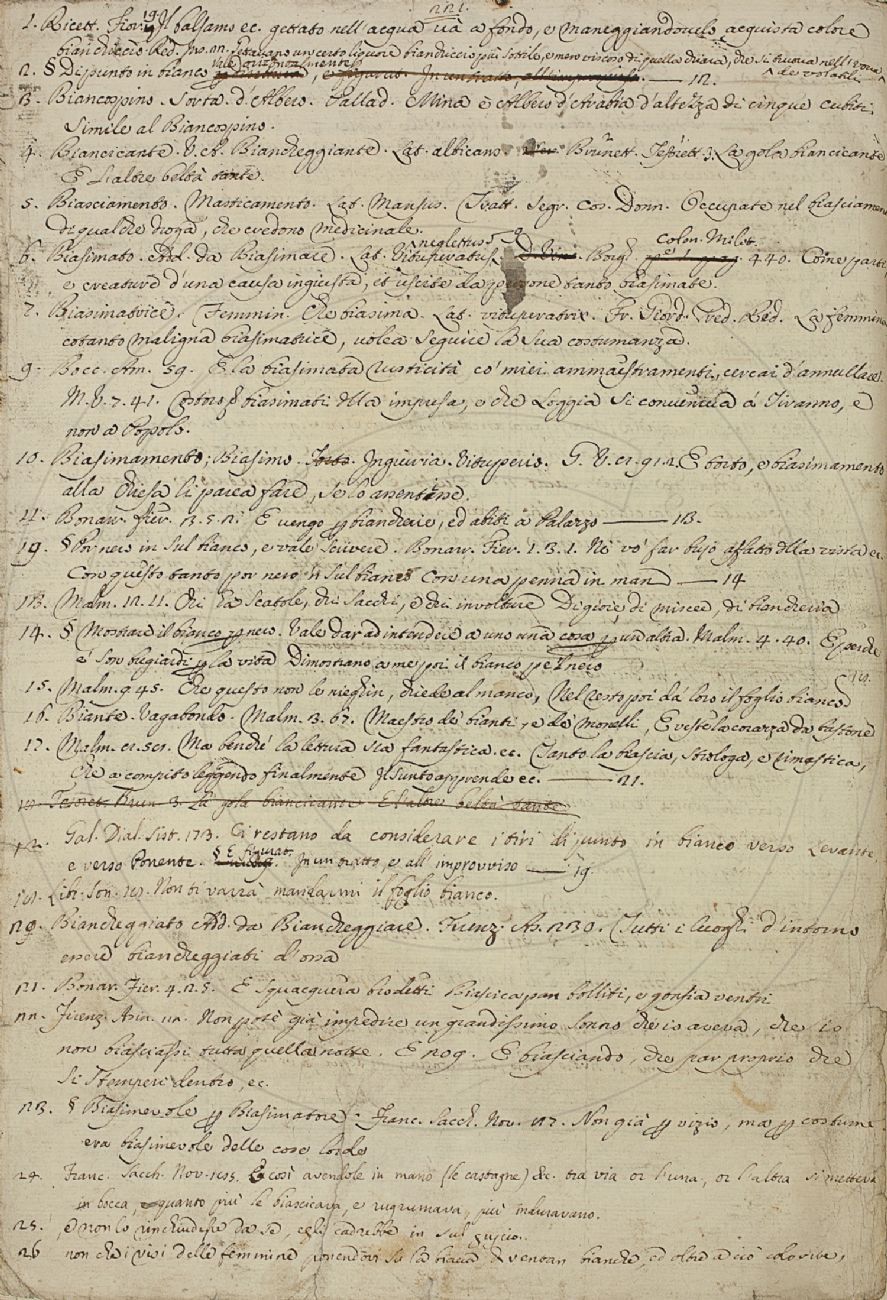 221.
1. Ricett. Fior. 19. Il balsamo ec. gettato nell'acqua và a fondo, e maneggiandovelo acquista colore
bianchiccio. Red. Ins. 22. Gettavano un certo liquore bianchiccio più sottile, e meno viscoso di quella chiara, che si truova nell'uova
de volatili
2. § Di punto in bianco vale orizontalmente, 12.
3. Biancospino. Sorta d'Albero. Pallad. Mirra è Albero d'Arabia d'altezza di cinque cubiti
simile al Biancospino.
4. Biancicante. V. et. Biancheggiante. Lat. albicans. Brunett. Tesorett. 3. La gola biancicante
E l'altre beltà tante.
5. Biasciamento. Masticamento. Lat. Mansus. Tratt. Segr. Cos. Donn. Occupate nel biasciamento
di qualche droga, che credono medicinale.
6. Biasimato. Add. da Biasimare. Lat. Vituperatus. neglectus Borgh. Colon. Milit. 440. Come parti,
e creature d'una causa ingiusta, et uscite da persone tanto biasimate.
7. Biasimatrice. Femmin. Che biasima. Lat. vituperatrix. Fr. Giord. Pred. Red. La femmina
cotanto maligna biasimatrice, volea seguire la sua costumanza.
9. Bocc. Am. 59. E la biasimata rusticità co' miei ammaestramenti, cercai d'annullare.
M. V. 7. 41. biasimati della impresa, e che Loggia si convenia a Tiranno, e
non a Popolo.
10. Biasimamento, Biasimo. Ingiuria. Vituperio. G. V. E torto, e biasimamento
alla Chiesa li parea fare, se lo assentisse.
11. Bonar. Fier. 3. 5. 2. E vengo p biancherie, ed abiti a Palazzo 13.
19. § Por nero in sul bianco, e vale scrivere. Bonar. Fier. 1. 3. 1. Nè vo' far bujo affatto della vista ec.
Con questo tanto por nero in sul bianco Con una penna in man 14
13. Malm. Chi ha scatole, chi sacchi, e chi involture Di gioie, di miscee, di biancheria
14. § Mostrare il bianco p nero. Vale dar ad intendere a uno una cosa p un'altra. Malm. 4. 40. E perchè
e' son bugiardi p la vita Dimostrano a me poi il bianco pe'l nero
15. Malm. 9. 45. Che questo non le nieghin, chiede al manco, Nel resto poi dà loro il foglio bianco
16. Biante. Vagabondo. Malm. 3. 67. Maestro de' bianti, e de' monelli, E veste la corazza da bastone
17. Malm. Ma benchè la lettura sia fantastica. ec. Tanto la biascia, strologa, e rimastica,
Che a compito leggendo finalmente Il sunto apprende ec. 21.
Tesoret. Brun. 3. La gola biancicante E l'altre beltà tante
12. Gal. Dial. Sist. 173. Ci restano da considerare i tiri di punto in bianco verso Levante,
e verso Ponente. § E figurat. In un tratto, e all'improvviso 19
Libr. Son. Non ti varrà mandarmi il foglio bianco.
Biancheggiato Add. da Biancheggiare. Firenz. As. 230. Tutti i luoghi d'intorno
essere biancheggiati d'ossa
21. Bonar. Fier. 4. 2. 5. E squacquera brodetti Biascica pan bolliti, e gonfia ventri
22. Firenz. Asin. 22. Non potè già impedire un grandissimo sonno che io aveva, che io
non biasciassi tutta quella notte. E 209. E biasciando, che par proprio che
si stemperi dentro, ec.
23. § Biasimevole p Biasimatore. Franc. Sacch. Nov. 127. Non già p vizio, ma p costume
era biasimevole delle cose lorde
24. Franc. Sacch. Nov. E così avendole in mano (le castagne) &c. tra via or l'una, or l'altra si metteva
in bocca, e quanto più le biascicava, e rugumava, più induravano.
25. , e non lo rinchiudesse da sè, egli cadrebbe in sul guscio.
26 non che i visi delle femmine ponendovi su la biacca divengan bianche, ed oltre a ciò colorire,